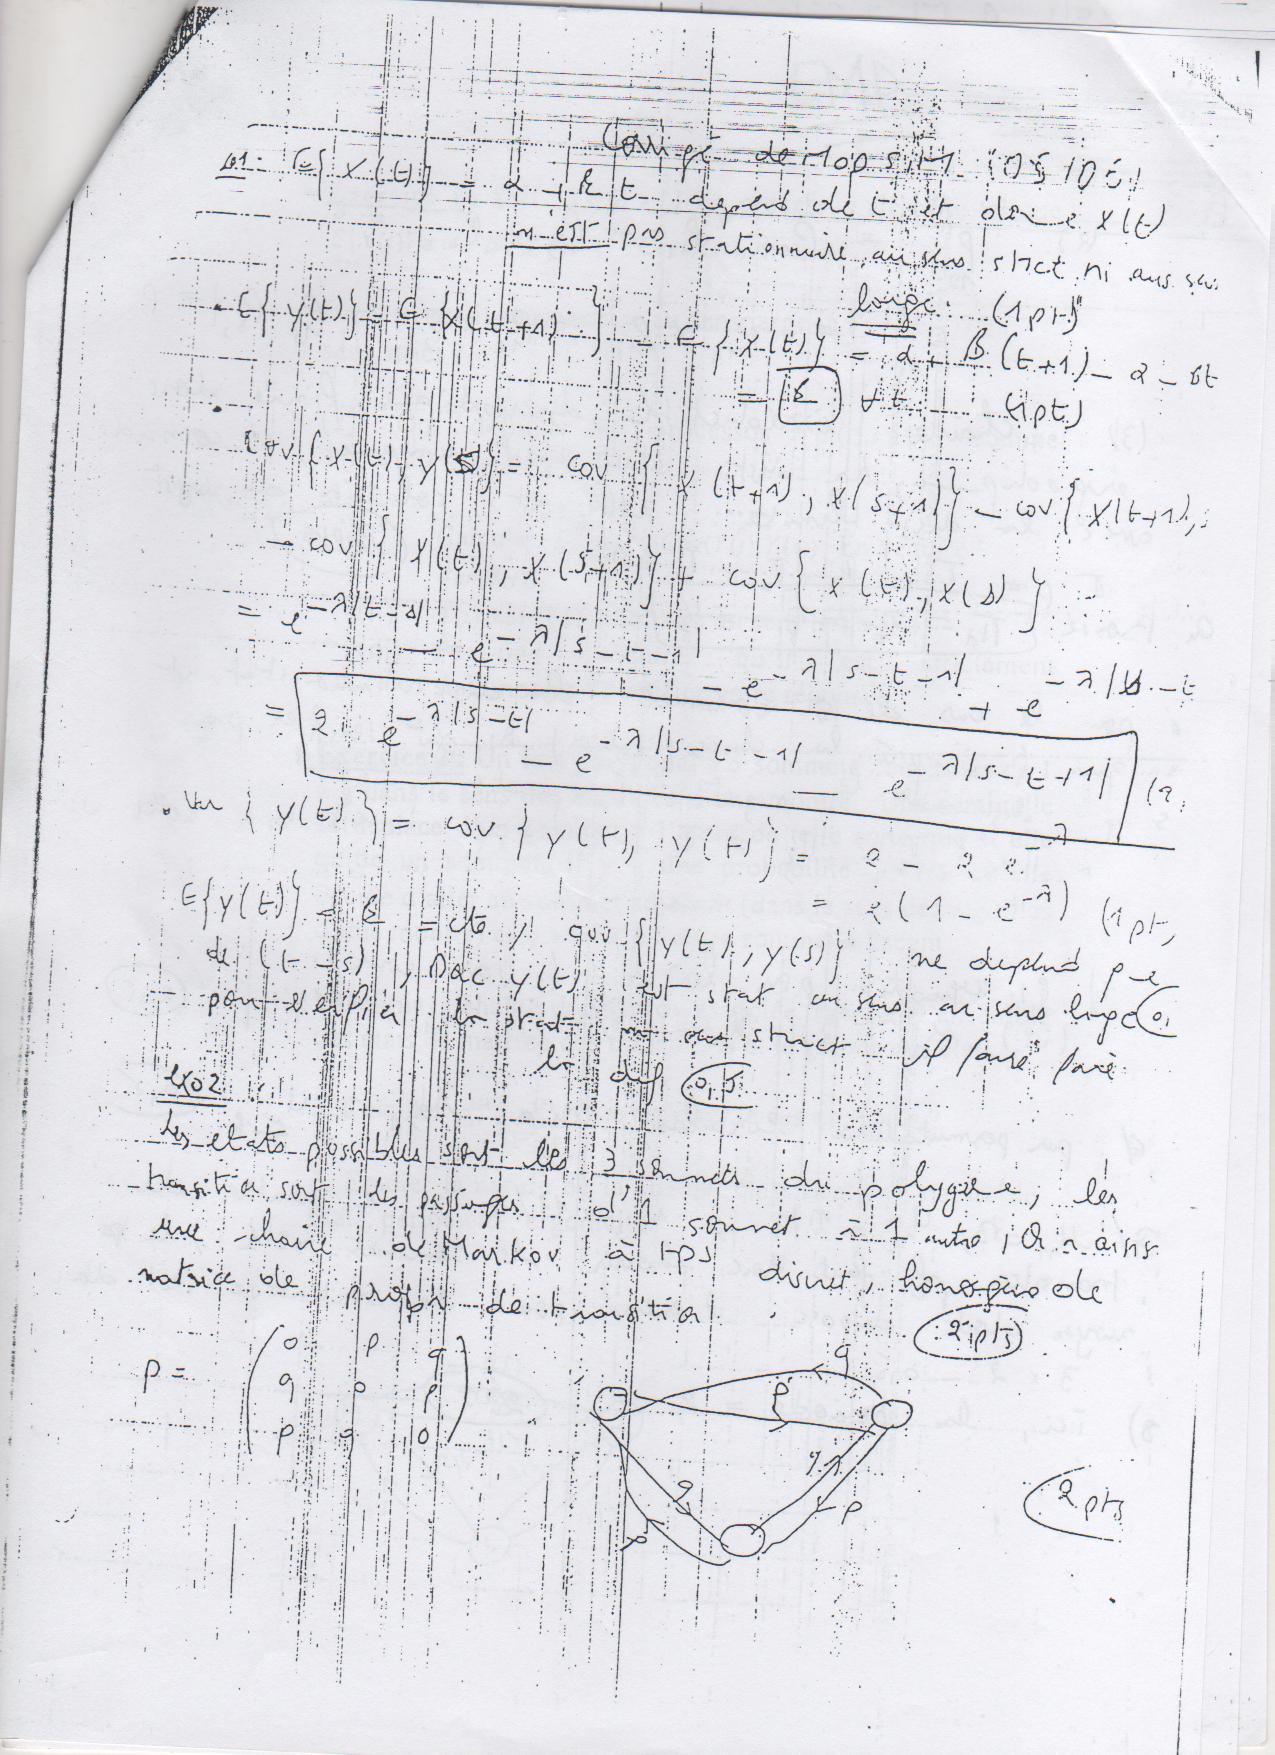 Corrigé de Mopsim 05/06
Ex1. E{X(t)} = α + β t depend de t et donc X(t)
n'est pas stationnaire, au sens strict ni aus sens
large. (1pt)
• E{Y(t)} = E{X(t+1)} - E{X(t)} = α + β(t+1) - α - βt
= β ∀t (1pt)
• cov{Y(t), Y(s)} = cov{X(t+1), X(s+1)} - cov{X(t+1),
- cov{X(t), X(s+1)} + cov{X(t), X(s)}
= e^{-λ|t-s|} - e^{-λ|s-t-1|} - e^{-λ|s-t-1|} + e^{-λ|s-t
= 2 e^{-λ|s-t|} - e^{-λ|s-t-1|} - e^{-λ|s-t+1|} (2
• Var{Y(t)} = cov{Y(t), Y(t)} = 2 - 2 e^{-λ}
= 2(1 - e^{-λ}) (1pt,
E{Y(t)} = β = cte, cov{Y(t), Y(s)} ne depend que
de (t-s), Donc Y(t) est stat au sens au sens large 0,
- pour verifier la stat au sens strict il faut faire
la def 0,5
exo2
Les etats possibles sont les 3 sommets du polygone, les
transitions sont les passages d'1 sommet à 1 autre, On a ainsi
une chaine de Markov à tps discret, homogène de
matrice de proba de transition (2pts)
P =
0 p q
q 0 p
p q 0
q
p
q
p
q
p
2pts